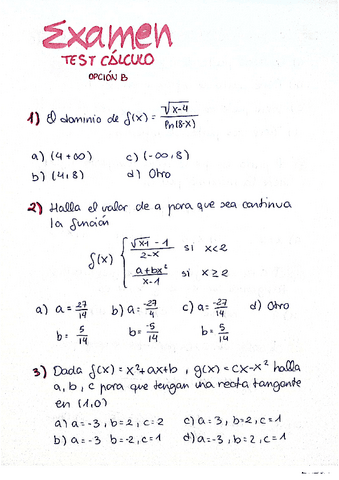 Examen
TEST CÁLCULO
OPCIÓN B
1) El dominio de f(x) = √x-4 / ln(8-x)
a) (4 +∞) c) (-∞, 8)
b) (4, 8) d) Otro
2) Halla el valor de a para que sea continua
la función
f(x) { √x-1 - 1 / 2-x si x<2
a+bx² / x-1 si x ≥ 2
a) a = 27/14 b) a = -27/4 c) a = -27/14 d) Otro
b = 5/14 b = -5/14 b = 5/14
3) Dada f(x) = x²+ax+b, g(x) = cx-x² halla
a, b, c para que tengan una recta tangente
en (1,0)
a) a=-3, b=2, c=2 c) a=3, b=2, c=1
b) a=-3 b=-2, c=1 d) a=-3, b=2, c=1